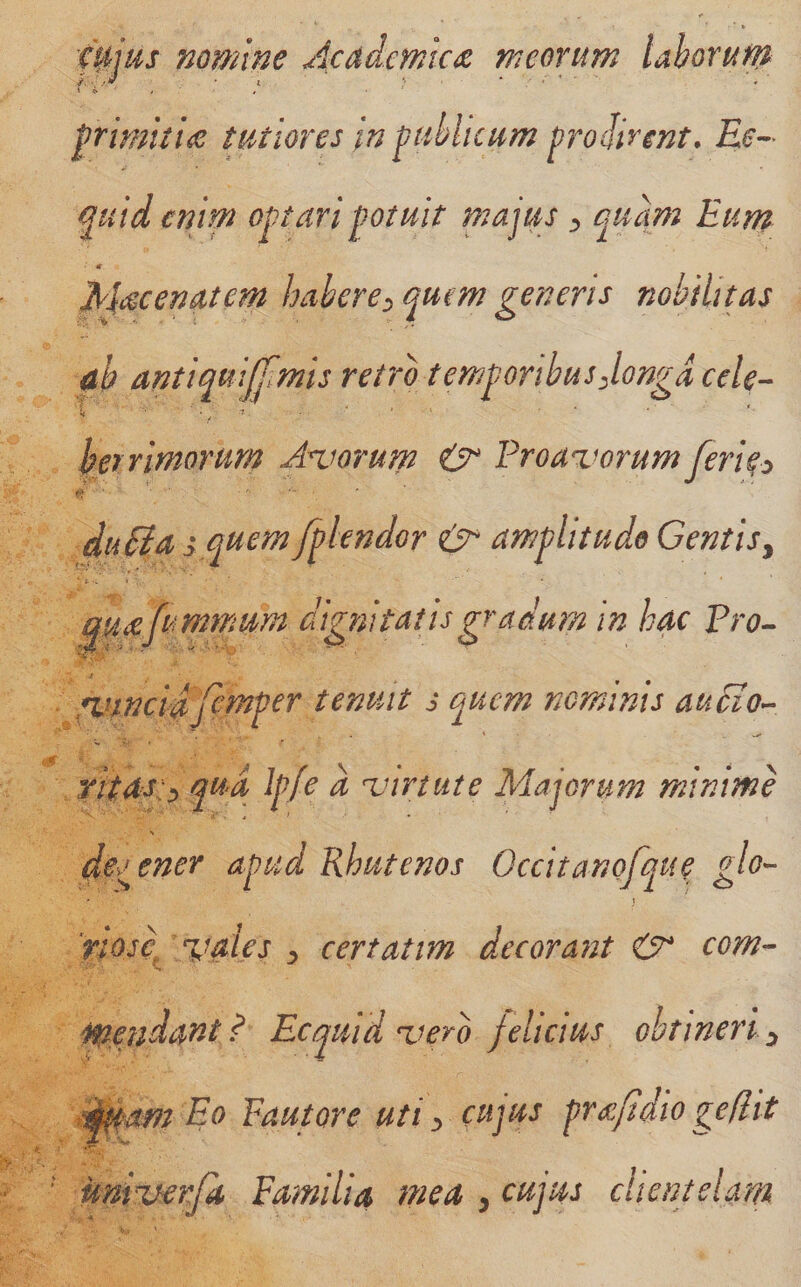 cujus nomine Academicæ meorum laborum
primitiæ tutiores in publicum prodirent. Ec-
quid enim optari potuit majus, quàm Eum
Mæcenatem habere, quem generis nobilitas
ab antiquiſſimis retrò temporibus, longâ cele-
berrimorum Avorum & Proavorum ſerie,
ducta; quem ſplendor & amplitudo Gentis,
quæ ſummum dignitatis gradum in hac Pro-
vinciâ ſemper tenuit; quem nominis aucto-
ritas, quâ Ipſe à virtute Majorum minimè
degener apud Rhutenos Occitanoſque glo-
riosè vales, certatim decorant & com-
mendant? Ecquid verò felicius obtineri,
quam Eo Fautore uti, cujus præſidio geſtit
univerſa Familia mea, cujus clientelam